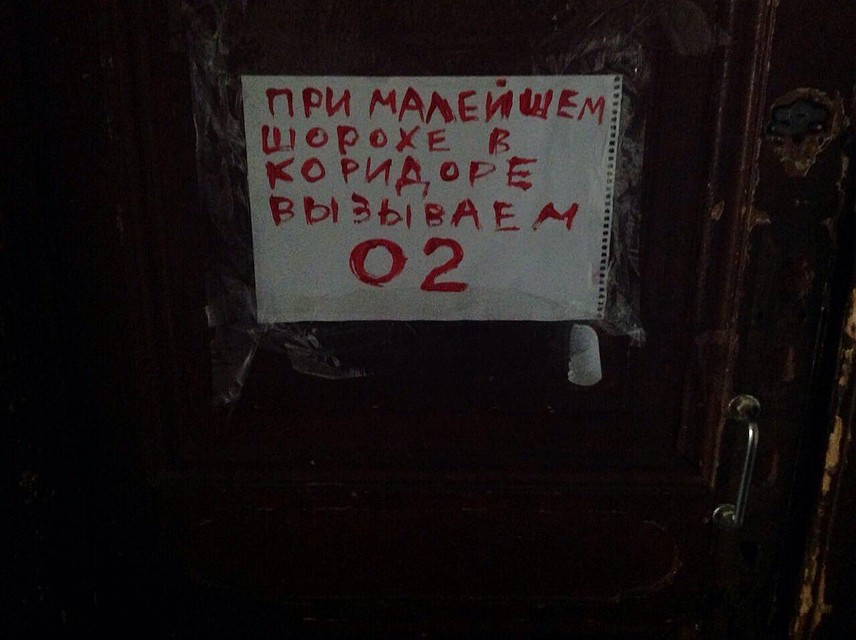 ПРИ МАЛЕЙШЕМ
ШОРОХЕ В
КОРИДОРЕ
ВЫЗЫВАЕМ
02